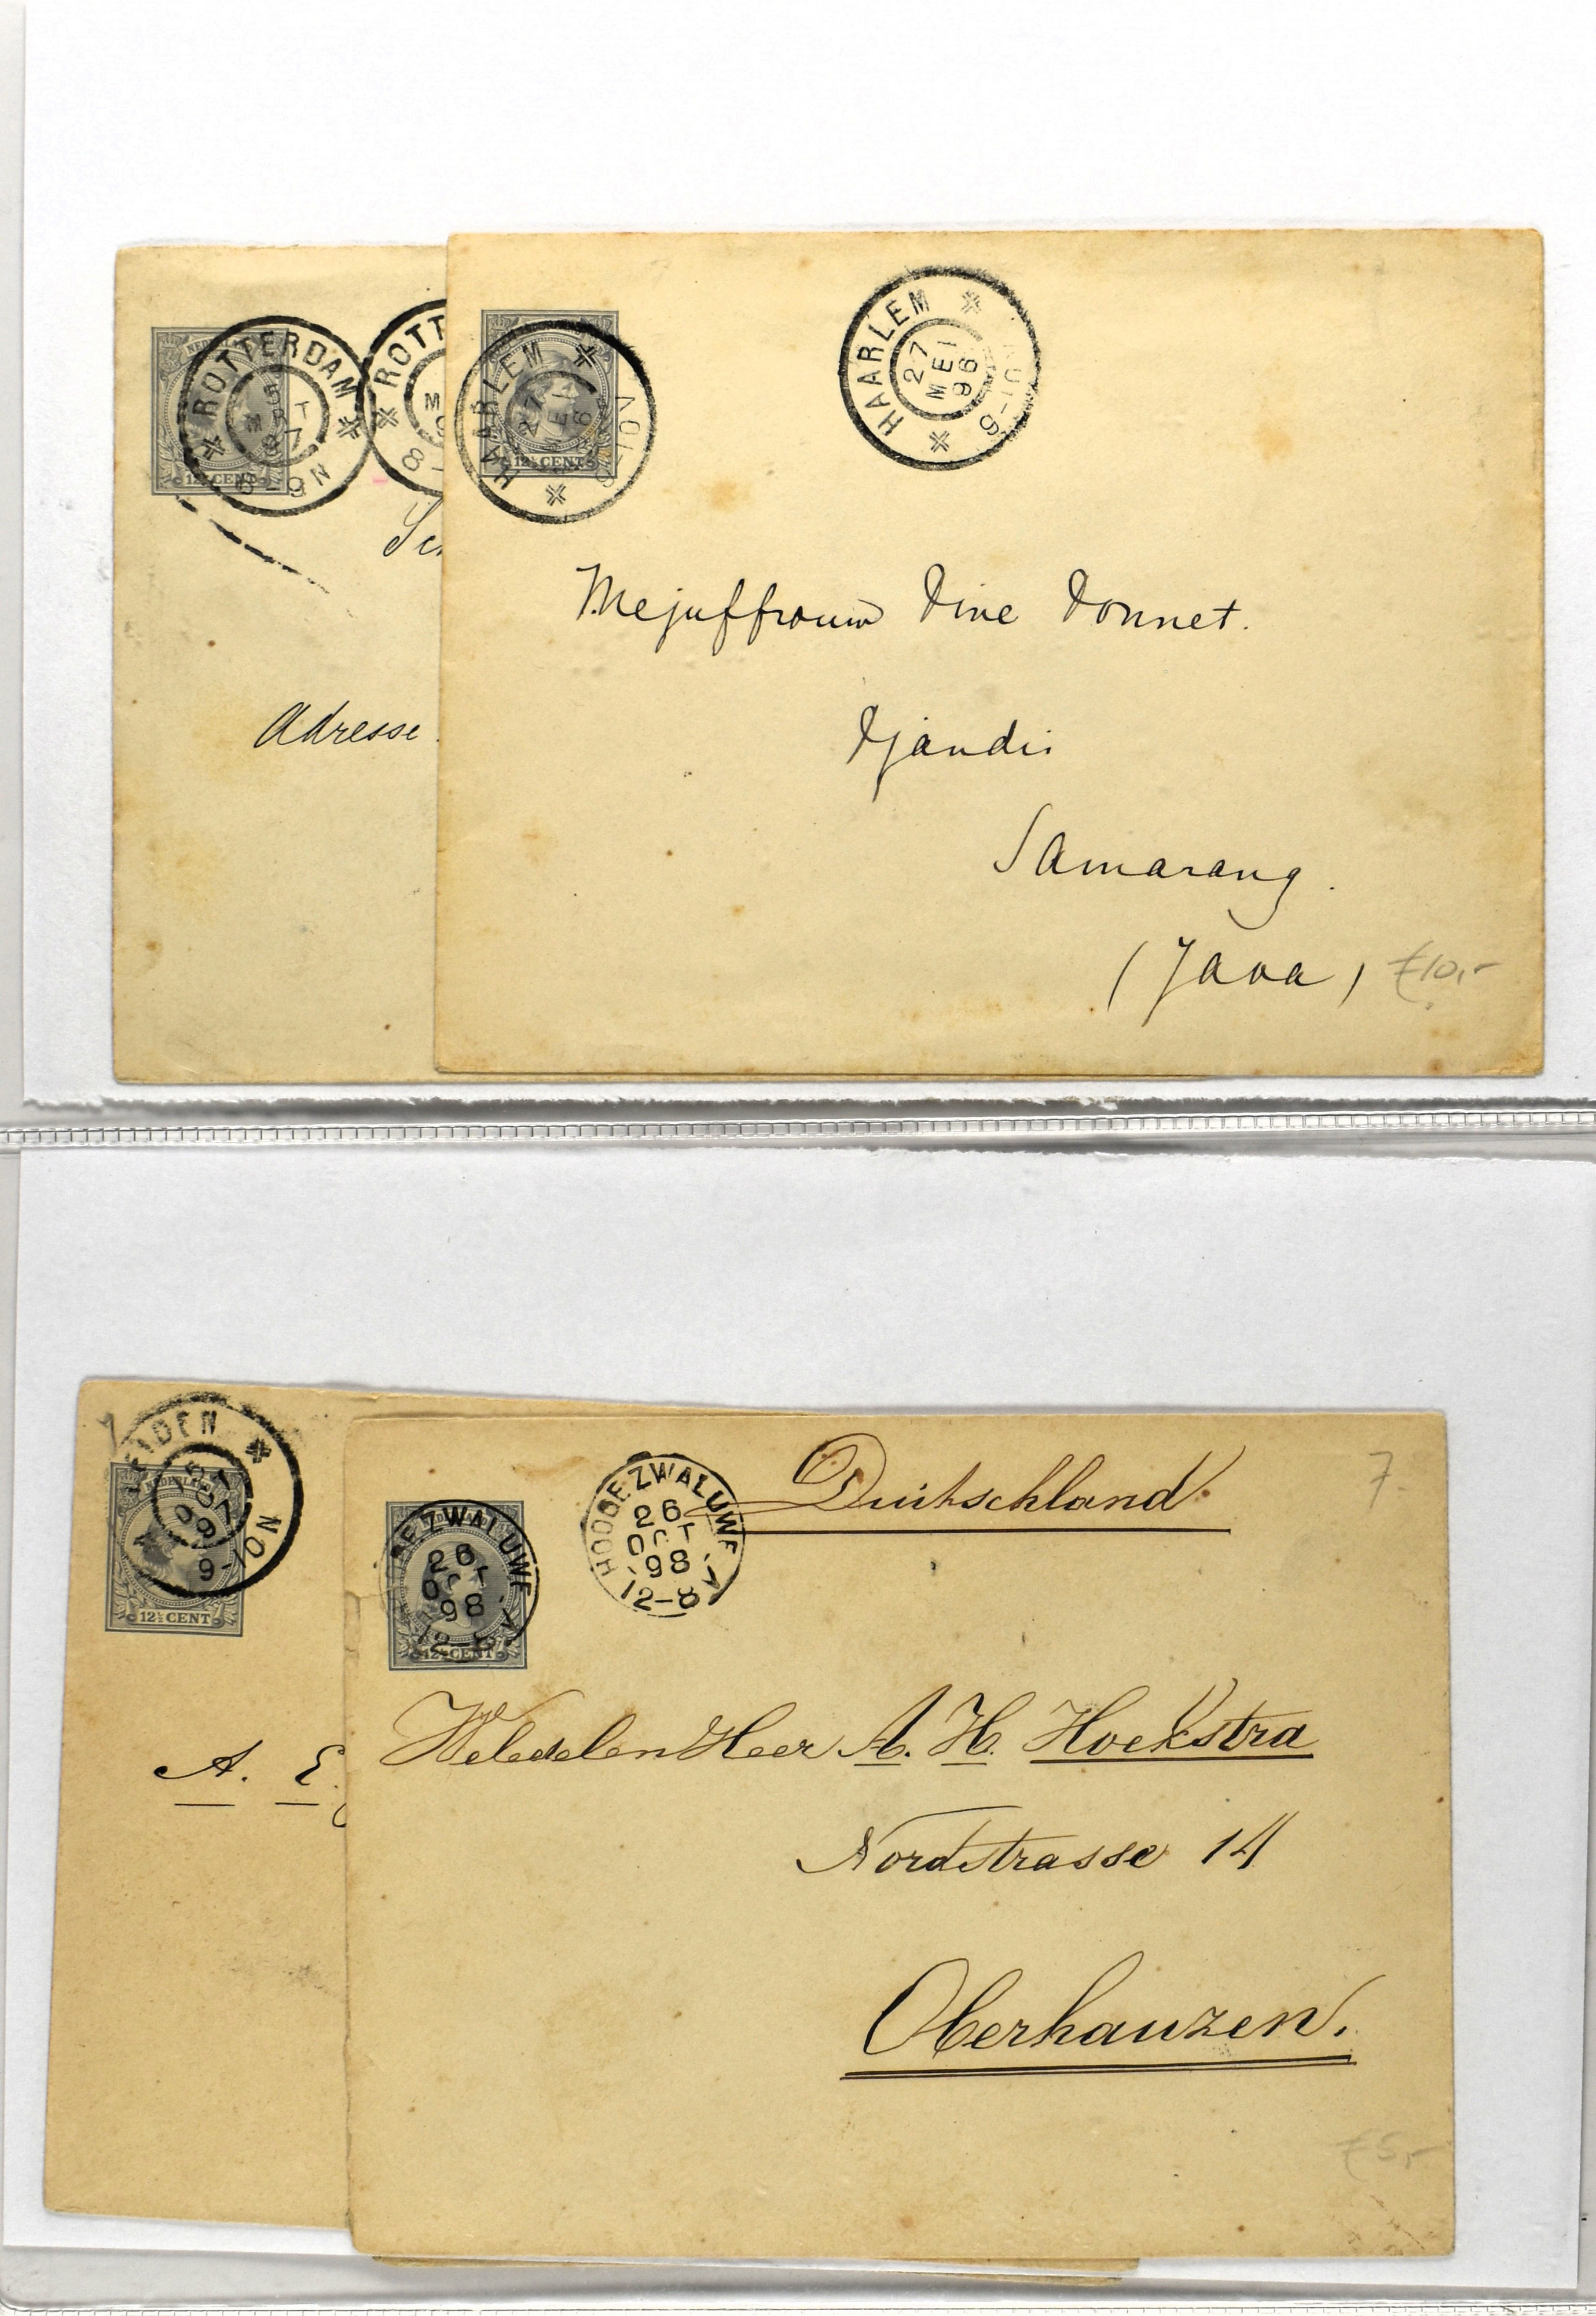 ROTTERDAM
5
MRT
97
8-9N
ROTT
M
9
8-
12½ CENT
Adresse
HAARLEM
27
MEI
96
12½ CENT
HAARLEM
27
MEI
96
Mejuffrouw Dine Donnet.
Djandi
Samarang.
(Java)
€10,-
LEIDEN
9-10N
12½ CENT
A. E.
HOOGE ZWALUWE
26
OCT
98
12-8V
12½ CENT
HOOGE ZWALUWE
26
OCT
98
12-8V
Duitschland
7.
WelEdelen Heer A. H. Hoekstra
Nordstrasse 14
Oberhauzen.
€5,-